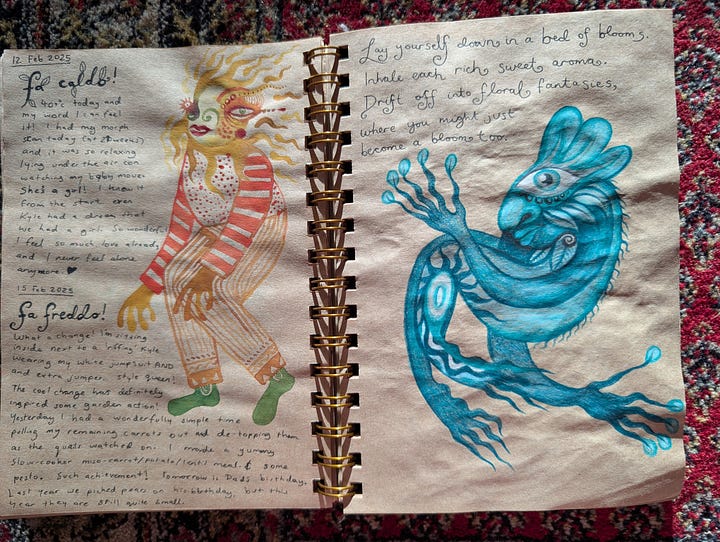 12 Feb 2025
fa caldo!
40°c today and
my word I can feel
it! I had my morph
scan today (at 21 weeks)
and it was so relaxing
lying under the air con
watching my baby move.
She's a grl! I knew it
from the start even
Kyle had a dream that
we had a girl. So wonderful!
I feel so much love already,
and I never feel alone
anymore. ♥
15 Feb 2025
fa freddo!
What a change! I'm sitting
inside next to a 'riffing' Kyle
wearing my white jumpsuit AND
and extra jumper. style queen!
The cool change has definitely
inspired some garden action!
Yesterday I had a wonderfully simple time
pulling my remaining carrots out and de-topping them
as the quails watched on. I made a yummy
slow-cooker miso-carrot/potato/lentil meal & some
pesto. Such achievement! Tomorrow is Dads birthday,
Last year we picked pears on his birthday, but this
year they are still quite small.
Lay yourself down in a bed of blooms.
Inhale each rich, sweet aroma.
Drift off into floral fantasies,
where you might just
become a bloom too.